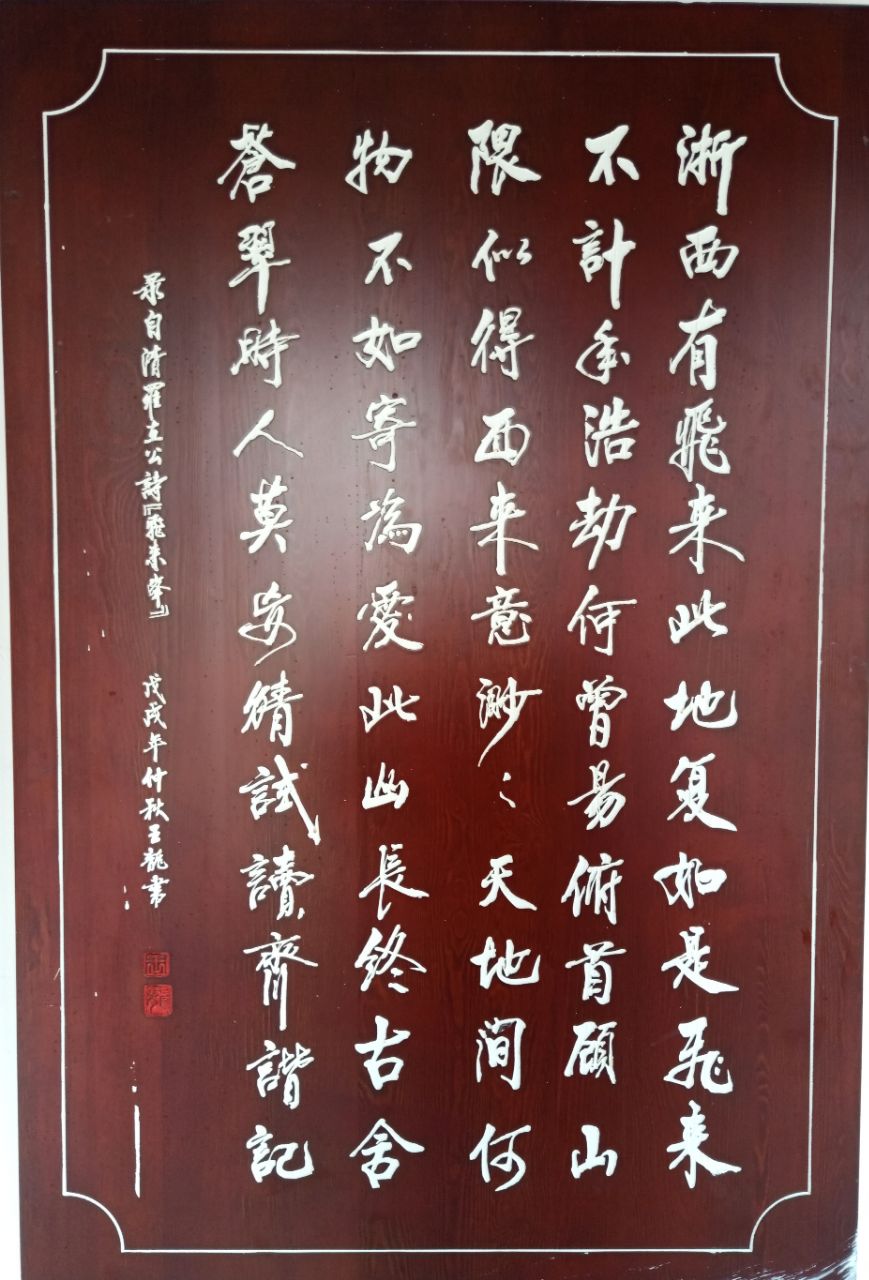 浙西有飛来此地复如是飛来
不計年浩劫何曾易俯首顾山
隈似得西来意渺々天地间何
物不如寄為愛此山長終古舍
蒼翠時人莫妄猜試讀齊諧記
录自清羅立公詩『飛来峰』 戊戌年仲秋王龍書